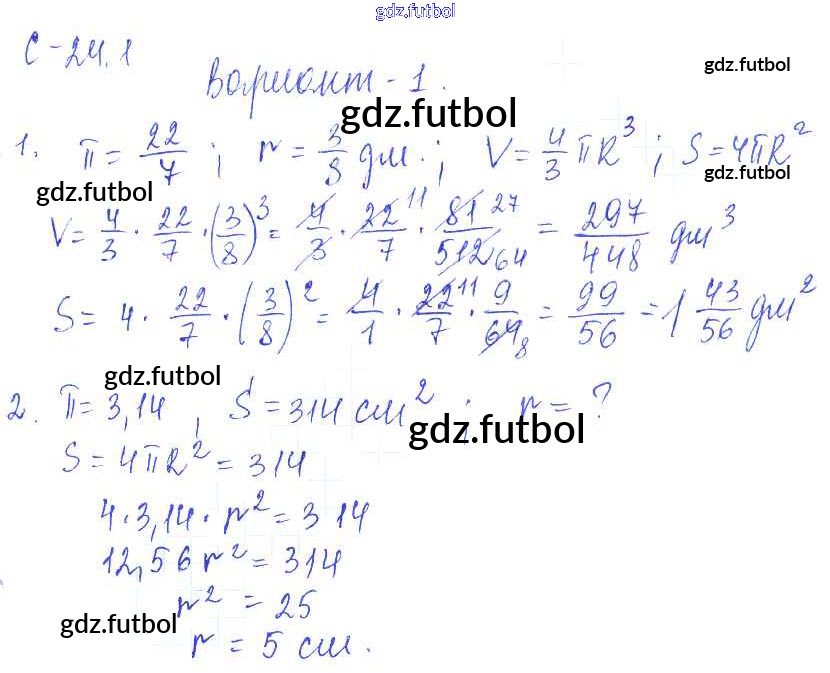 gdz.futbol
С-24.1
gdz.futbol
Вариант-1.
gdz.futbol
1. π = 22/7 ; r = 3/8 дм. ; V = 4/3 πR³ ; S = 4πR²
gdz.futbol
gdz.futbol
V = 4/3 · 22/7 · (3/8)³ = 4/3 · 22 11/7 · 81 27/512 64 = 297/448 дм³
S = 4 · 22/7 · (3/8)² = 4/1 · 22 11/7 · 9/64 8 = 99/56 = 1 43/56 дм²
gdz.futbol
2. π = 3,14 , S = 314 см² ; r = ?
gdz.futbol
S = 4πR² = 314
4 · 3,14 · r² = 314
12,56 r² = 314
r² = 25
gdz.futbol
r = 5 см.